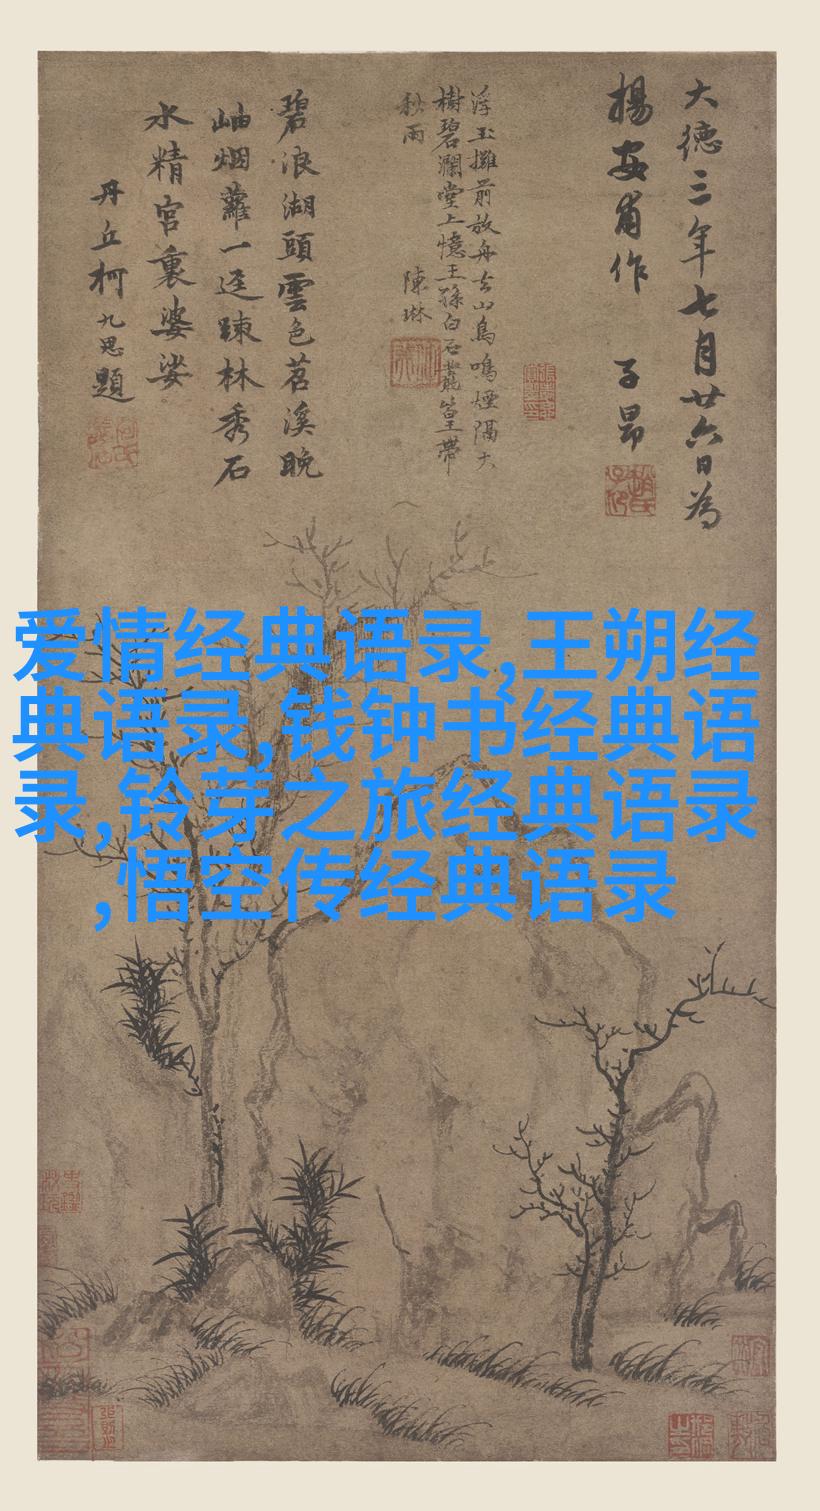 大德三年七月廿六日為
揚安甫作 子昂
浮玉攤前放舟去山鳥鳴煙隔大
樹碧瀾堂上憶王孫白石叢篁帶
秋雨 陳琳
碧浪湖頭雲色苕溪晚
岫烟蘿一逕踈林秀石
水精宮裏婆娑
丹丘柯九思題
爱情经典语录,王朔经
典语录,钱钟书经典语
录,铃芽之旅经典语录
,悟空传经典语录